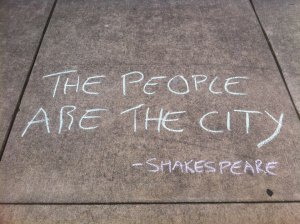 THE PEOPLE
ARE THE CITY
-SHAKESPEARE